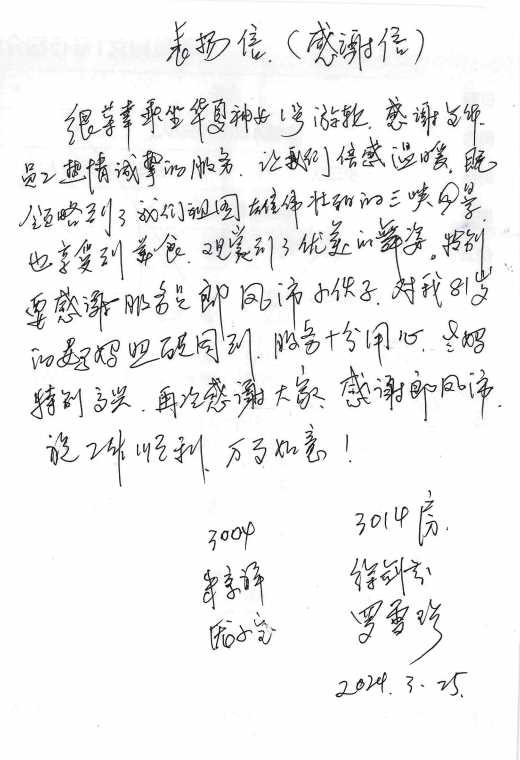 表扬信.（感谢信）
很荣幸乘坐华夏神女1号游轮.感谢全体
员工热情诚挚的服务.让我们倍感温暖.既
领略到了我们祖国雄伟壮丽的三峡风景
也享受到美食.观赏到了优美的舞姿。特别
要感谢服务员郎凤沛小伙子.对我81岁
的老妈照顾周到.服务十分用心.老妈
特别高兴.再次感谢大家、感谢郎凤沛.
祝工作顺利、万事如意！
3014房.
3004
罗雪珍
2024.3.25.